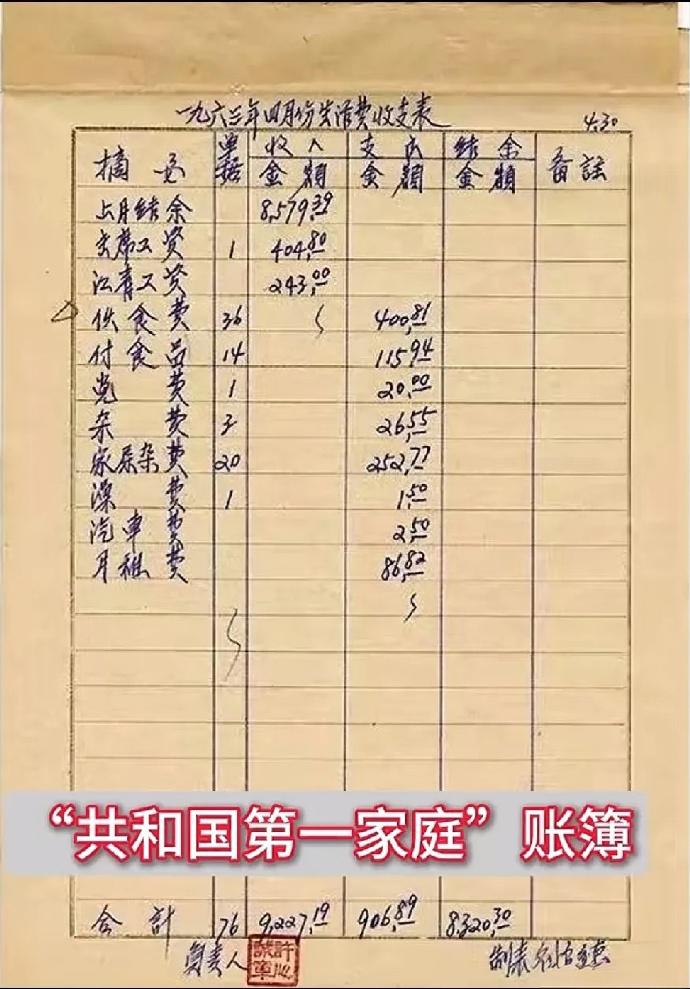 一九六三年四月份生活费收支表 4.30
摘要 单据 收入金额 支出金额 结余金额 备註
上月结余 8,579.39
主席工资 1 404.80
江青工资 243.00
伙食费 36 400.81
付食品 14 115.94
党费 1 20.00
杂费 3 26.55
家属杂费 20 252.77
澡费 1 1.50
汽車费 2.50
月租费 86.82
“共和国第一家庭”账簿
合計 76 9,227.19 906.89 8,320.30
負责人 制表